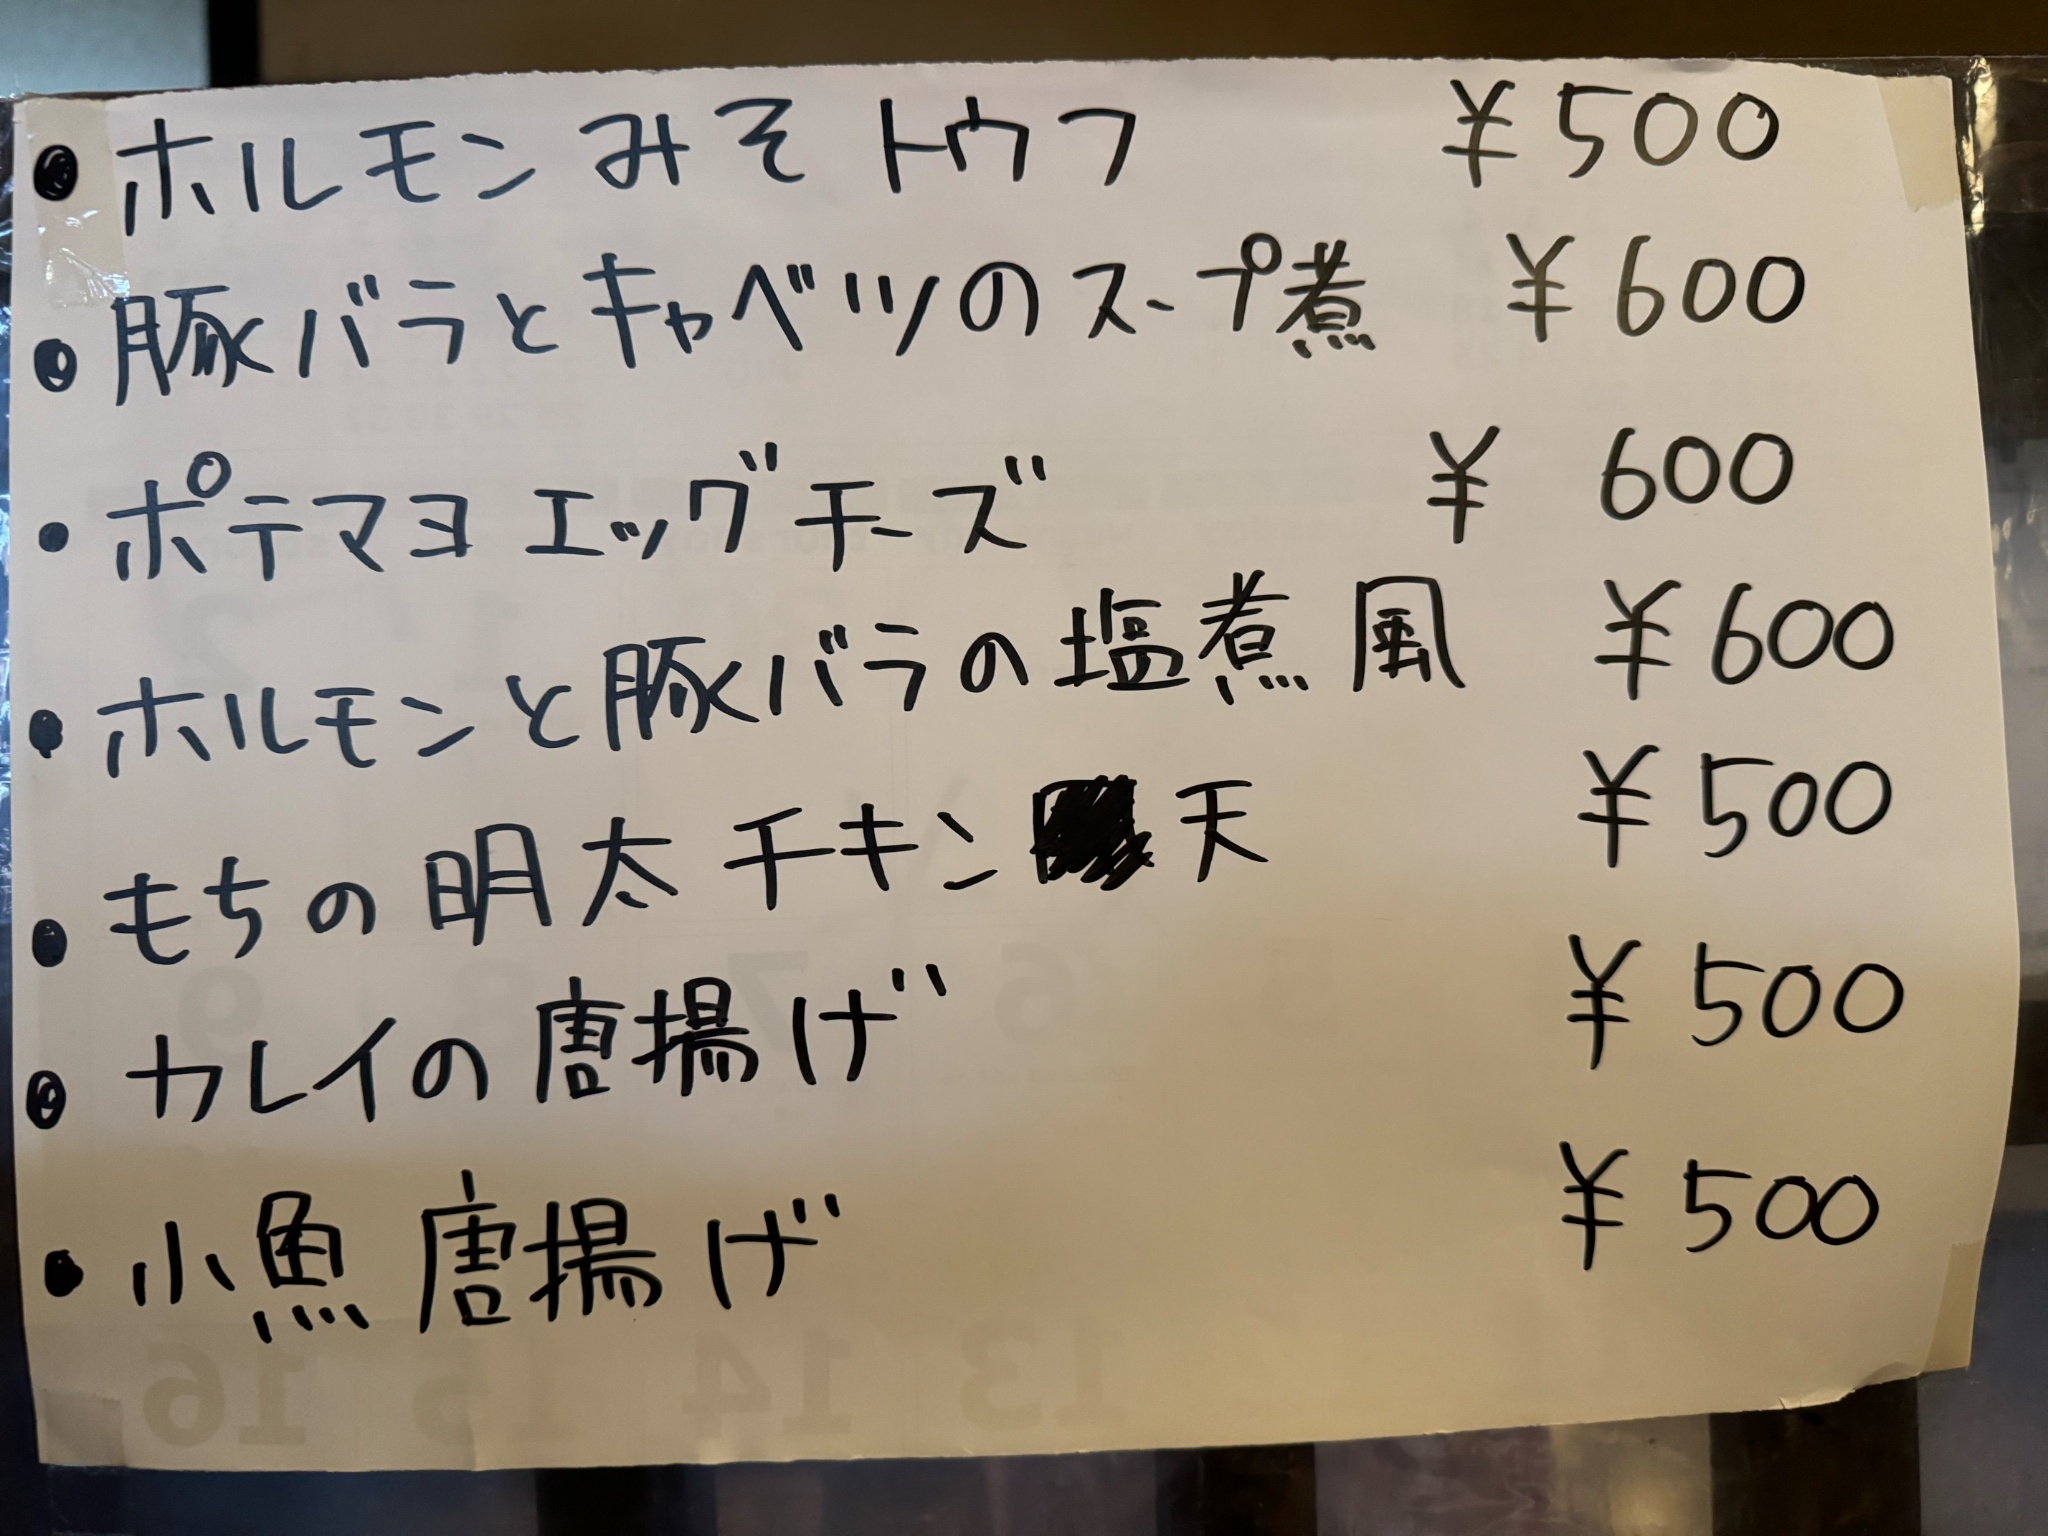 ・ホルモンみそトウフ ¥500
・豚バラとキャベツのスープ煮 ¥600
・ポテマヨエッグチーズ ¥600
・ホルモンと豚バラの塩煮風 ¥600
・もちの明太チキン天 ¥500
・カレイの唐揚げ ¥500
・小魚唐揚げ ¥500